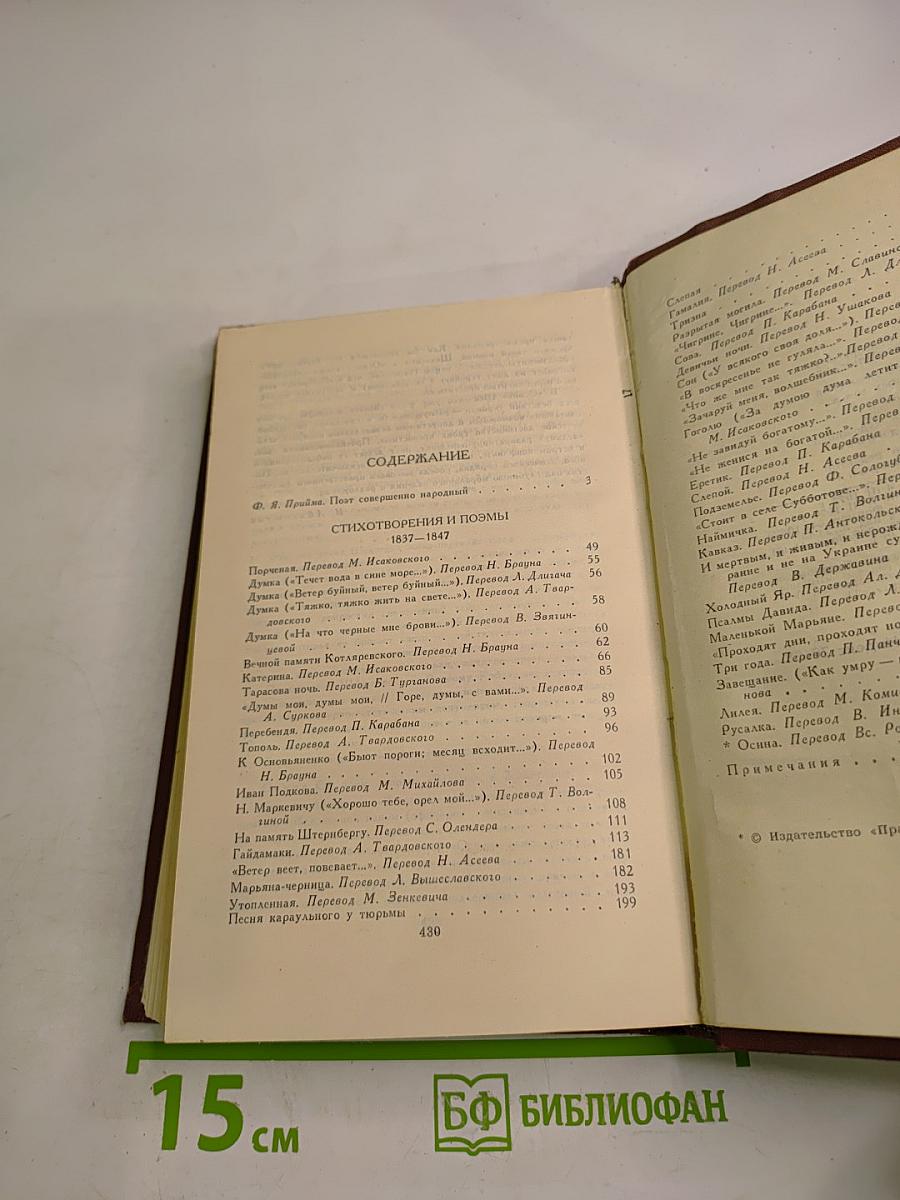 СОДЕРЖАНИЕ
Ф. Я. Прийма. Поэт совершенно народный . . . . . . . 3
СТИХОТВОРЕНИЯ И ПОЭМЫ
1837—1847
Порченая. Перевод М. Исаковского . . . . . . . . . 49
Думка («Течет вода в сине море...»). Перевод Н. Брауна . . 55
Думка («Ветер буйный, ветер буйный...»). Перевод Л. Длигача 56
Думка («Тяжко, тяжко жить на свете...»). Перевод А. Твар-
довского . . . . . . . . . . . . . . . . . 58
Думка («На что черные мне брови...»). Перевод В. Звягин-
цевой . . . . . . . . . . . . . . . . . . 60
Вечной памяти Котляревского. Перевод Н. Брауна . . . . 62
Катерина. Перевод М. Исаковского . . . . . . . . . 66
Тарасова ночь. Перевод Б. Турганова . . . . . . . . 85
«Думы мои, думы мои, // Горе, думы, с вами...». Перевод
А. Суркова . . . . . . . . . . . . . . . . 89
Перебендя. Перевод П. Карабана . . . . . . . . . . 93
Тополь. Перевод А. Твардовского . . . . . . . . . . 96
К Основьяненко («Бьют пороги; месяц всходит...»). Перевод
Н. Брауна . . . . . . . . . . . . . . . . . 102
Иван Подкова. Перевод М. Михайлова . . . . . . . . 105
Н. Маркевичу («Хорошо тебе, орел мой...»). Перевод Т. Вол-
гиной . . . . . . . . . . . . . . . . . . 108
На память Штернбергу. Перевод С. Олендера . . . . . . 111
Гайдамаки. Перевод А. Твардовского . . . . . . . . . 113
«Ветер веет, повевает...». Перевод Н. Асеева . . . . . . 181
Марьяна-черница. Перевод Л. Вышеславского . . . . . . 182
Утопленная. Перевод М. Зенкевича . . . . . . . . . 193
Песня караульного у тюрьмы . . . . . . . . . . . 199
430
Слепая . . . . . . . . .
Гамалия. Перевод Н. Асеева . . . .
Тризна . . . . . . . . .
Разрытая могила. Перевод М. Славинс
«Чигрине, Чигрине...». Перевод Л. Дл
Сова. Перевод П. Карабана . . . .
Девичьи ночи. Перевод Н. Ушакова
Сон («У всякого своя доля...»). Перев
«В воскресенье не гуляла...». Перевод
«Что же мне так тяжко?..». Перевод
«Зачаруй меня, волшебник...». Перев
Гоголю («За думою дума летит
М. Исаковского . . . . .
«Не завидуй богатому...». Перевод
«Не женися на богатой...». Перев
Еретик. Перевод П. Карабана
Слепой. Перевод Н. Асеева . .
Подземелье. Перевод Ф. Сологуб
«Стоит в селе Субботове...». Пер
Наймичка. Перевод Т. Волгин
Кавказ. Перевод П. Антокольск
И мертвым, и живым, и нерож
раине и не на Украине су
Перевод В. Державина
Холодный Яр. Перевод Ал. Д
Псалмы Давида. Перевод Л.
Маленькой Марьяне. Перево
«Проходят дни, проходят но
Три года. Перевод П. Панч
Завещание. («Как умру —
нова . . . .
Лилея. Перевод М. Коми
Русалка. Перевод В. Ин
* Осина. Перевод Вс. Ро
Примечания . . .
* © Издательство «Пра
17
15 см
БФ БИБЛИОФАН